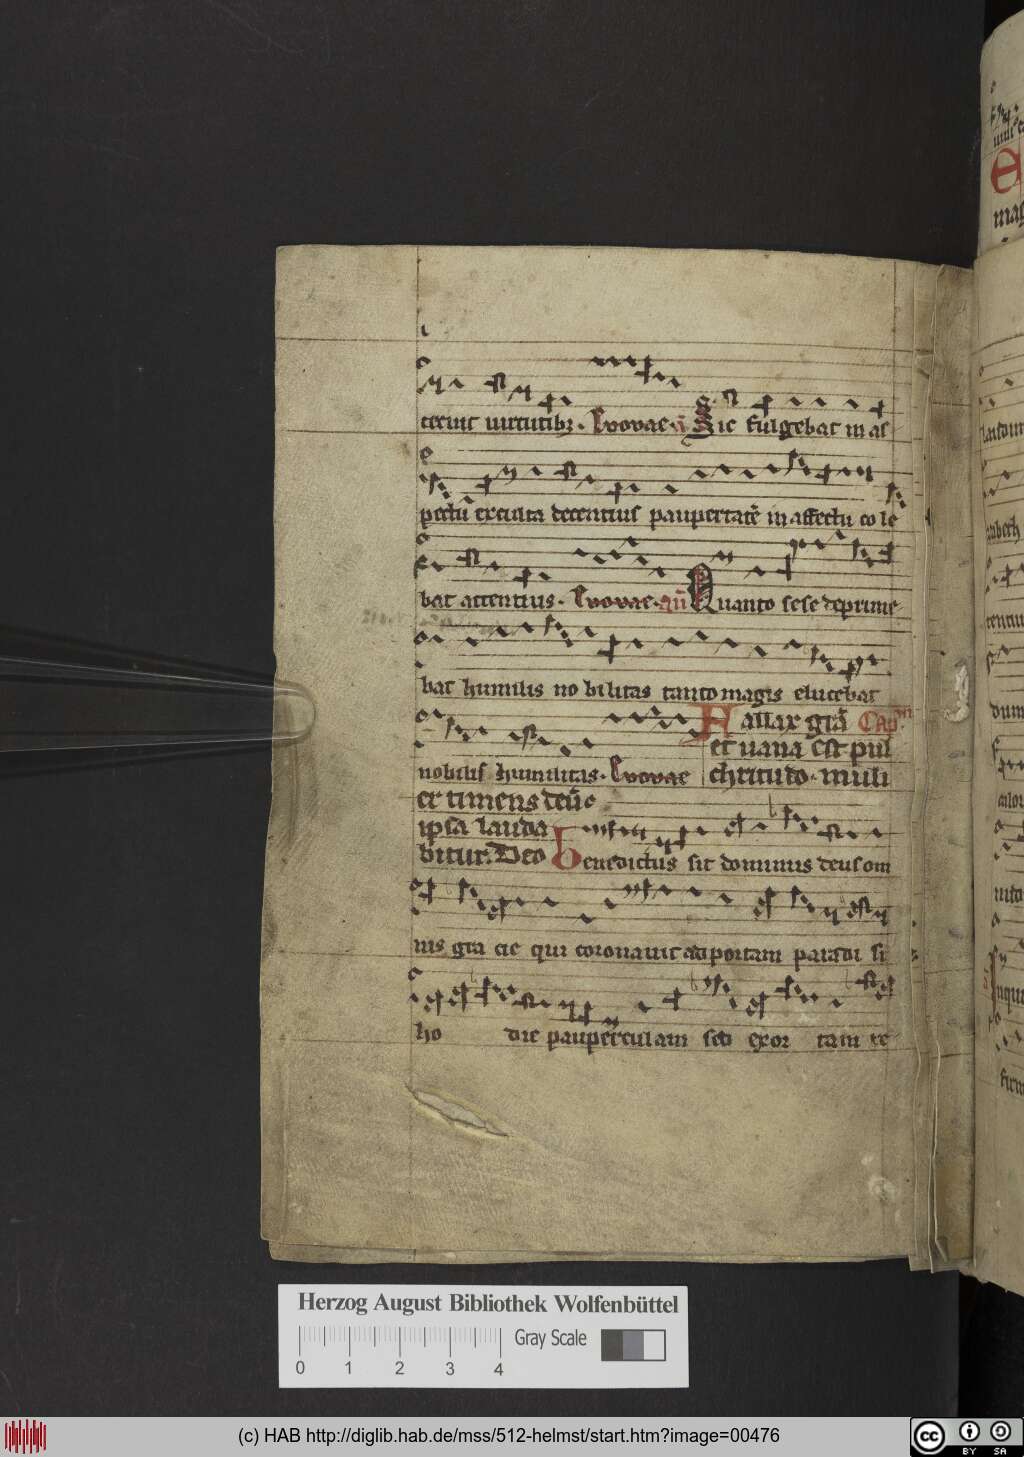 texuit uirtutibꝫ. Evovae. añ Sic fulgebat in as
pectu exculta decentius paupertatē in affectu cole
bat attentius. Evovae. añ Quanto sese deprime
bat humilis nobilitas tanto magis elucebat
nobilis humilitas. Evovae
Fallax grā Cap
et uana est pul
chritudo. muli
er timens deū
ipsa lauda
bitur. Deo
Benedictus sit dominus deus om
nis
qui coronauit ad portam paradi si
ho die pauperculam sed
Herzog August Bibliothek Wolfenbüttel
Gray Scale
0 1 2 3 4
(c) HAB http://diglib.hab.de/mss/512-helmst/start.htm?image=00476
cc BY SA